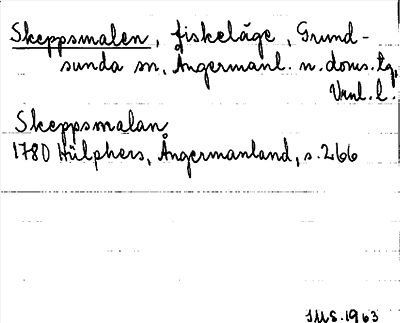 Skeppsmalen, fiskeläge, Grund-
sunda sn, Ångermanl. n. doms. tg,
Vnl. l.
Skeppsmalan
1780 Hülphers, Ångermanland, s. 266
JMS. 1963